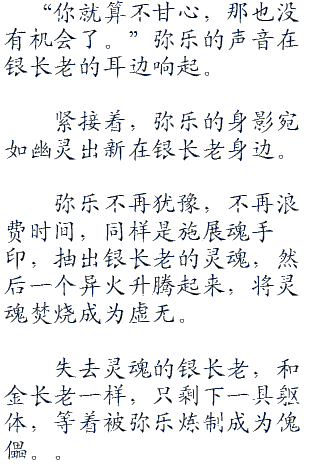 “你就算不甘心，那也没
有机会了。”弥乐的声音在
银长老的耳边响起。
紧接着，弥乐的身影宛
如幽灵出新在银长老身边。
弥乐不再犹豫，不再浪
费时间，同样是施展魂手
印，抽出银长老的灵魂，然
后一个异火升腾起来，将灵
魂焚烧成为虚无。
失去灵魂的银长老，和
金长老一样，只剩下一具躯
体，等着被弥乐炼制成为傀
儡。。